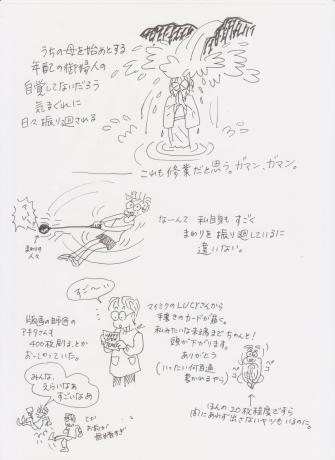 うちの母を始めとする
年配の御婦人の
自覚してないだろう
気まぐれに
日々振り廻される
これも修業だと思う。ガマン、ガマン。
なーんて 私自身も すごく
まわりを振り廻しているに
違いない。
まわりの
人々
すご〜い
マイミクのLUCYさんから
手書きのカードが届く。
私みたいな末端までちゃんと!
頭が下がります。
ありがとう
(いったい何百通
書かれるやら)
版画の師匠の
アキタさんも
400枚刷る、とか
おっしゃっていた。
みんな、
えらいなぁ
すごいなぁ
てか
お前が
ほんの20枚程度ですら
間にあわず出さないヤツもいるのに。